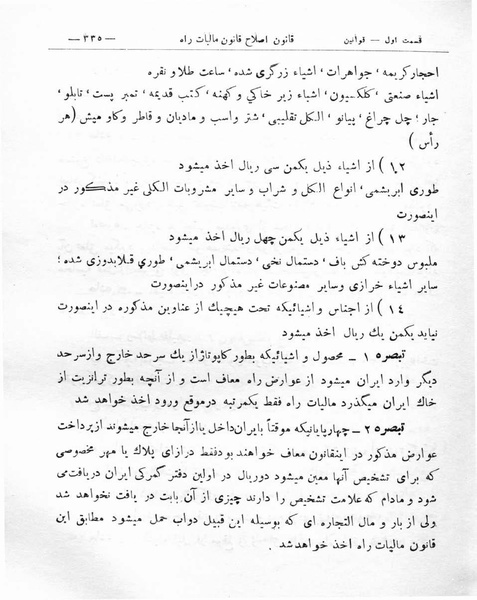 قسمت اول — قوانین
قانون اصلاح قانون مالیات راه
— ۳۳۵ —
احجار کریمه ، جواهرات ، اشیاء زرگری شده ، ساعت طلا و نقره
اشیاء صنعتی ، کلکسیون ، اشیاء زیر خاکی و کهنه ، کتب قدیمه ، تمبر پست ، تابلو ،
جار ؛ چل چراغ ، پیانو ، الکل تقلیبی ، شتر واسب و مادیان و قاطر وکاو میش (هر
رأس )
۱۲ ) از اشیاء ذیل یکمن سی ریال اخذ میشود
طوری ابریشمی ، انواع الکل و شراب و سایر مشروبات الکلی غیر مذکور در
اینصورت
۱۳ ) از اشیاء ذیل یکمن چهل ریال اخذ میشود
ملبوس دوخته کش باف ، دستمال نخی ، دستمال ابریشمی ، طوری قلابدوزی شده ؛
سایر اشیاء خرازی وسایر مصنوعات غیر مذکور دراینصورت
۱٤ ) از اجناس و اشیائیکه تحت هیچیک از عناوین مذکوره در اینصورت
نیاید یکمن یك ریال اخذ میشود
تبصره ۱ — محصول و اشیائیکه بطور کاپوتاژ از یك سرحد خارج وازسرحد
دیگر وارد ایران میشود از عوارض راه معاف است و از آنچه بطور ترانزیت از
خاك ایران میگذرد مالیات راه فقط یکمرتبه درموقع ورود اخذ خواهد شد
تبصره ۲ — چهارپایانیکه موقتاً بایران داخل یاازآنجا خارج میشوند ازپرداخت
عوارض مذکور در اینقانون معاف خواهند بود فقط درازای پلاك یا مهر مخصوصی
که برای تشخیص آنها معین میشود دوریال در اولین دفتر گمرکی ایران دریافت می
شود و مادام که علامت تشخیص را دارند چیزی از آن بابت در یافت نخواهد شد
ولی از بار و مال التجاره ای که بوسیله این قبیل دواب حمل میشود مطابق این
قانون مالیات راه اخذ خواهد شد .